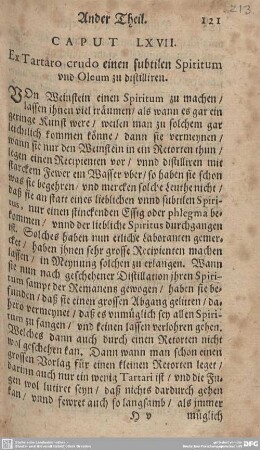 213
Ander Theil. 121
CAPUT LXVII.
Ex Tartaro crudo einen subtilen Spiritum
vnd Oleum zu distilliren.
VOn Weinstein einen Spiritum zu machen/
lassen ihnen viel träumen/ als wann es gar ein
geringe Kunst were/ weilen man zu solchem gar
leichtlich kommen könne/ dann sie vermeynen/
wann sie nur den Weinstein in ein Retorten thun/
legen einen Recipienten vor/ vnnd distilliren mit
starckem Fewer ein Wasser vber/ so haben sie schon
was sie begehren/ vnd mercken solche Leuthe nicht/
daß sie an statt eines lieblichen vnnd subtilen Spiri-
tus, nur einen stinckenden Essig oder phlegma be-
kommen/ vnnd der liebliche Spiritus durchgangen
ist. Solches haben nun etliche Laboranten gemer-
cket/ haben jhnen sehr grosse Recipienten machen
lassen/ in Meynung solchen zu erlangen. Wann
sie nun nach geschehener Distillation jhren Spiri-
tum sampt der Remanens gewogen/ haben sie be-
funden/ daß sie einen grossen Abgang gelitten/ da-
hero vermeynet/ daß es vnmüglich sey allen Spiri-
tum zu fangen/ vnd keinen lassen verlohren gehen.
Welches dann auch durch einen Retorten nicht
wol geschehen kan. Dann wann man schon einen
grossen Vorlag für einen kleinen Retorten leget/
darinn auch nur ein wenig Tartari ist/ vnd die Fu-
gen wol lutiret seyn/ daß nichts dardurch gehen
kan/ vnnd fewret auch so langsamb/ als immer
H v müglich